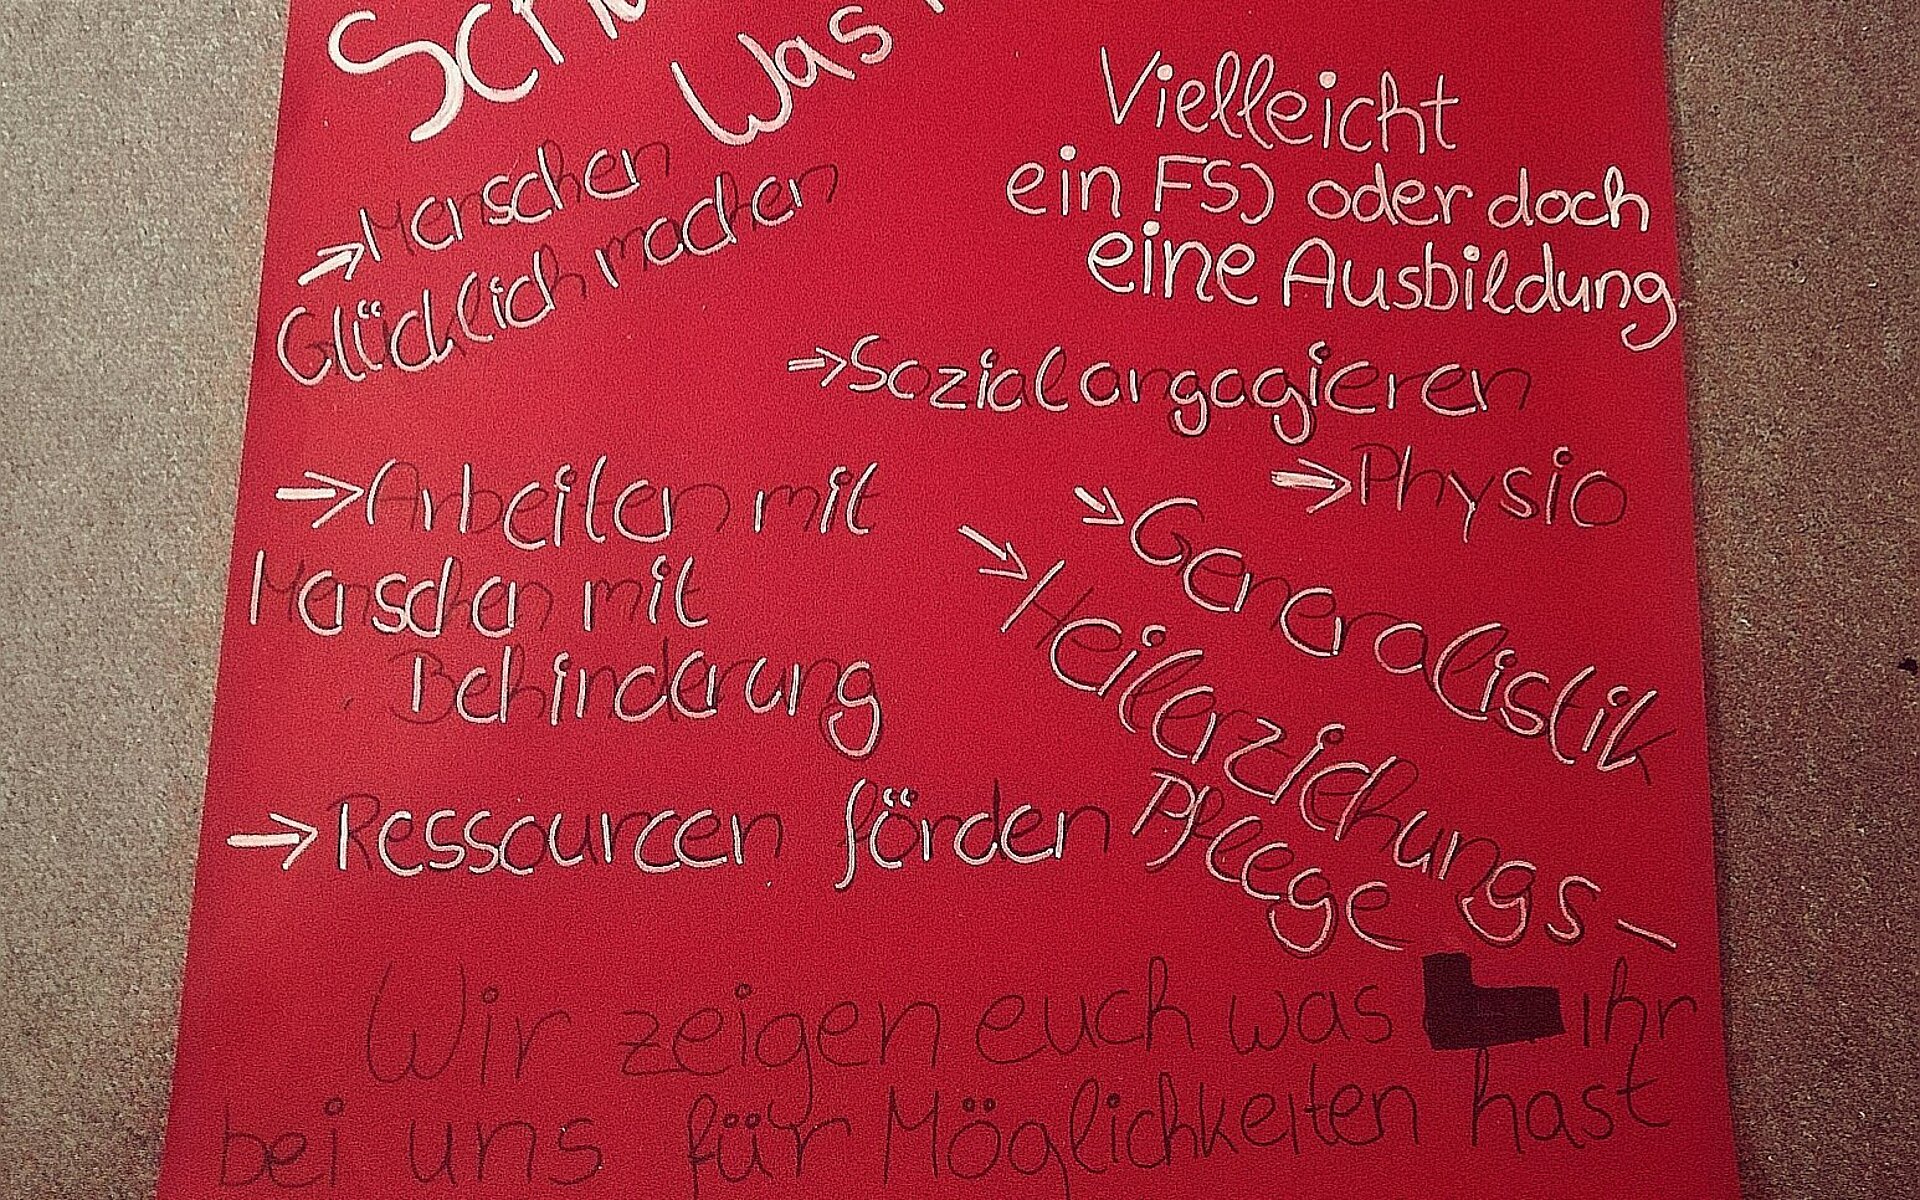 Was
Vielleicht
ein FSJ oder doch
eine Ausbildung
→Menschen
Glücklich machen
→Sozial angagieren
→Physio
→Generalistik
→Heilerziehungs-
Pflege
→Arbeiten mit
Menschen mit
Behinderung
→Ressourcen förden
Wir zeigen euch was ihr
bei uns für Möglichkeiten hast